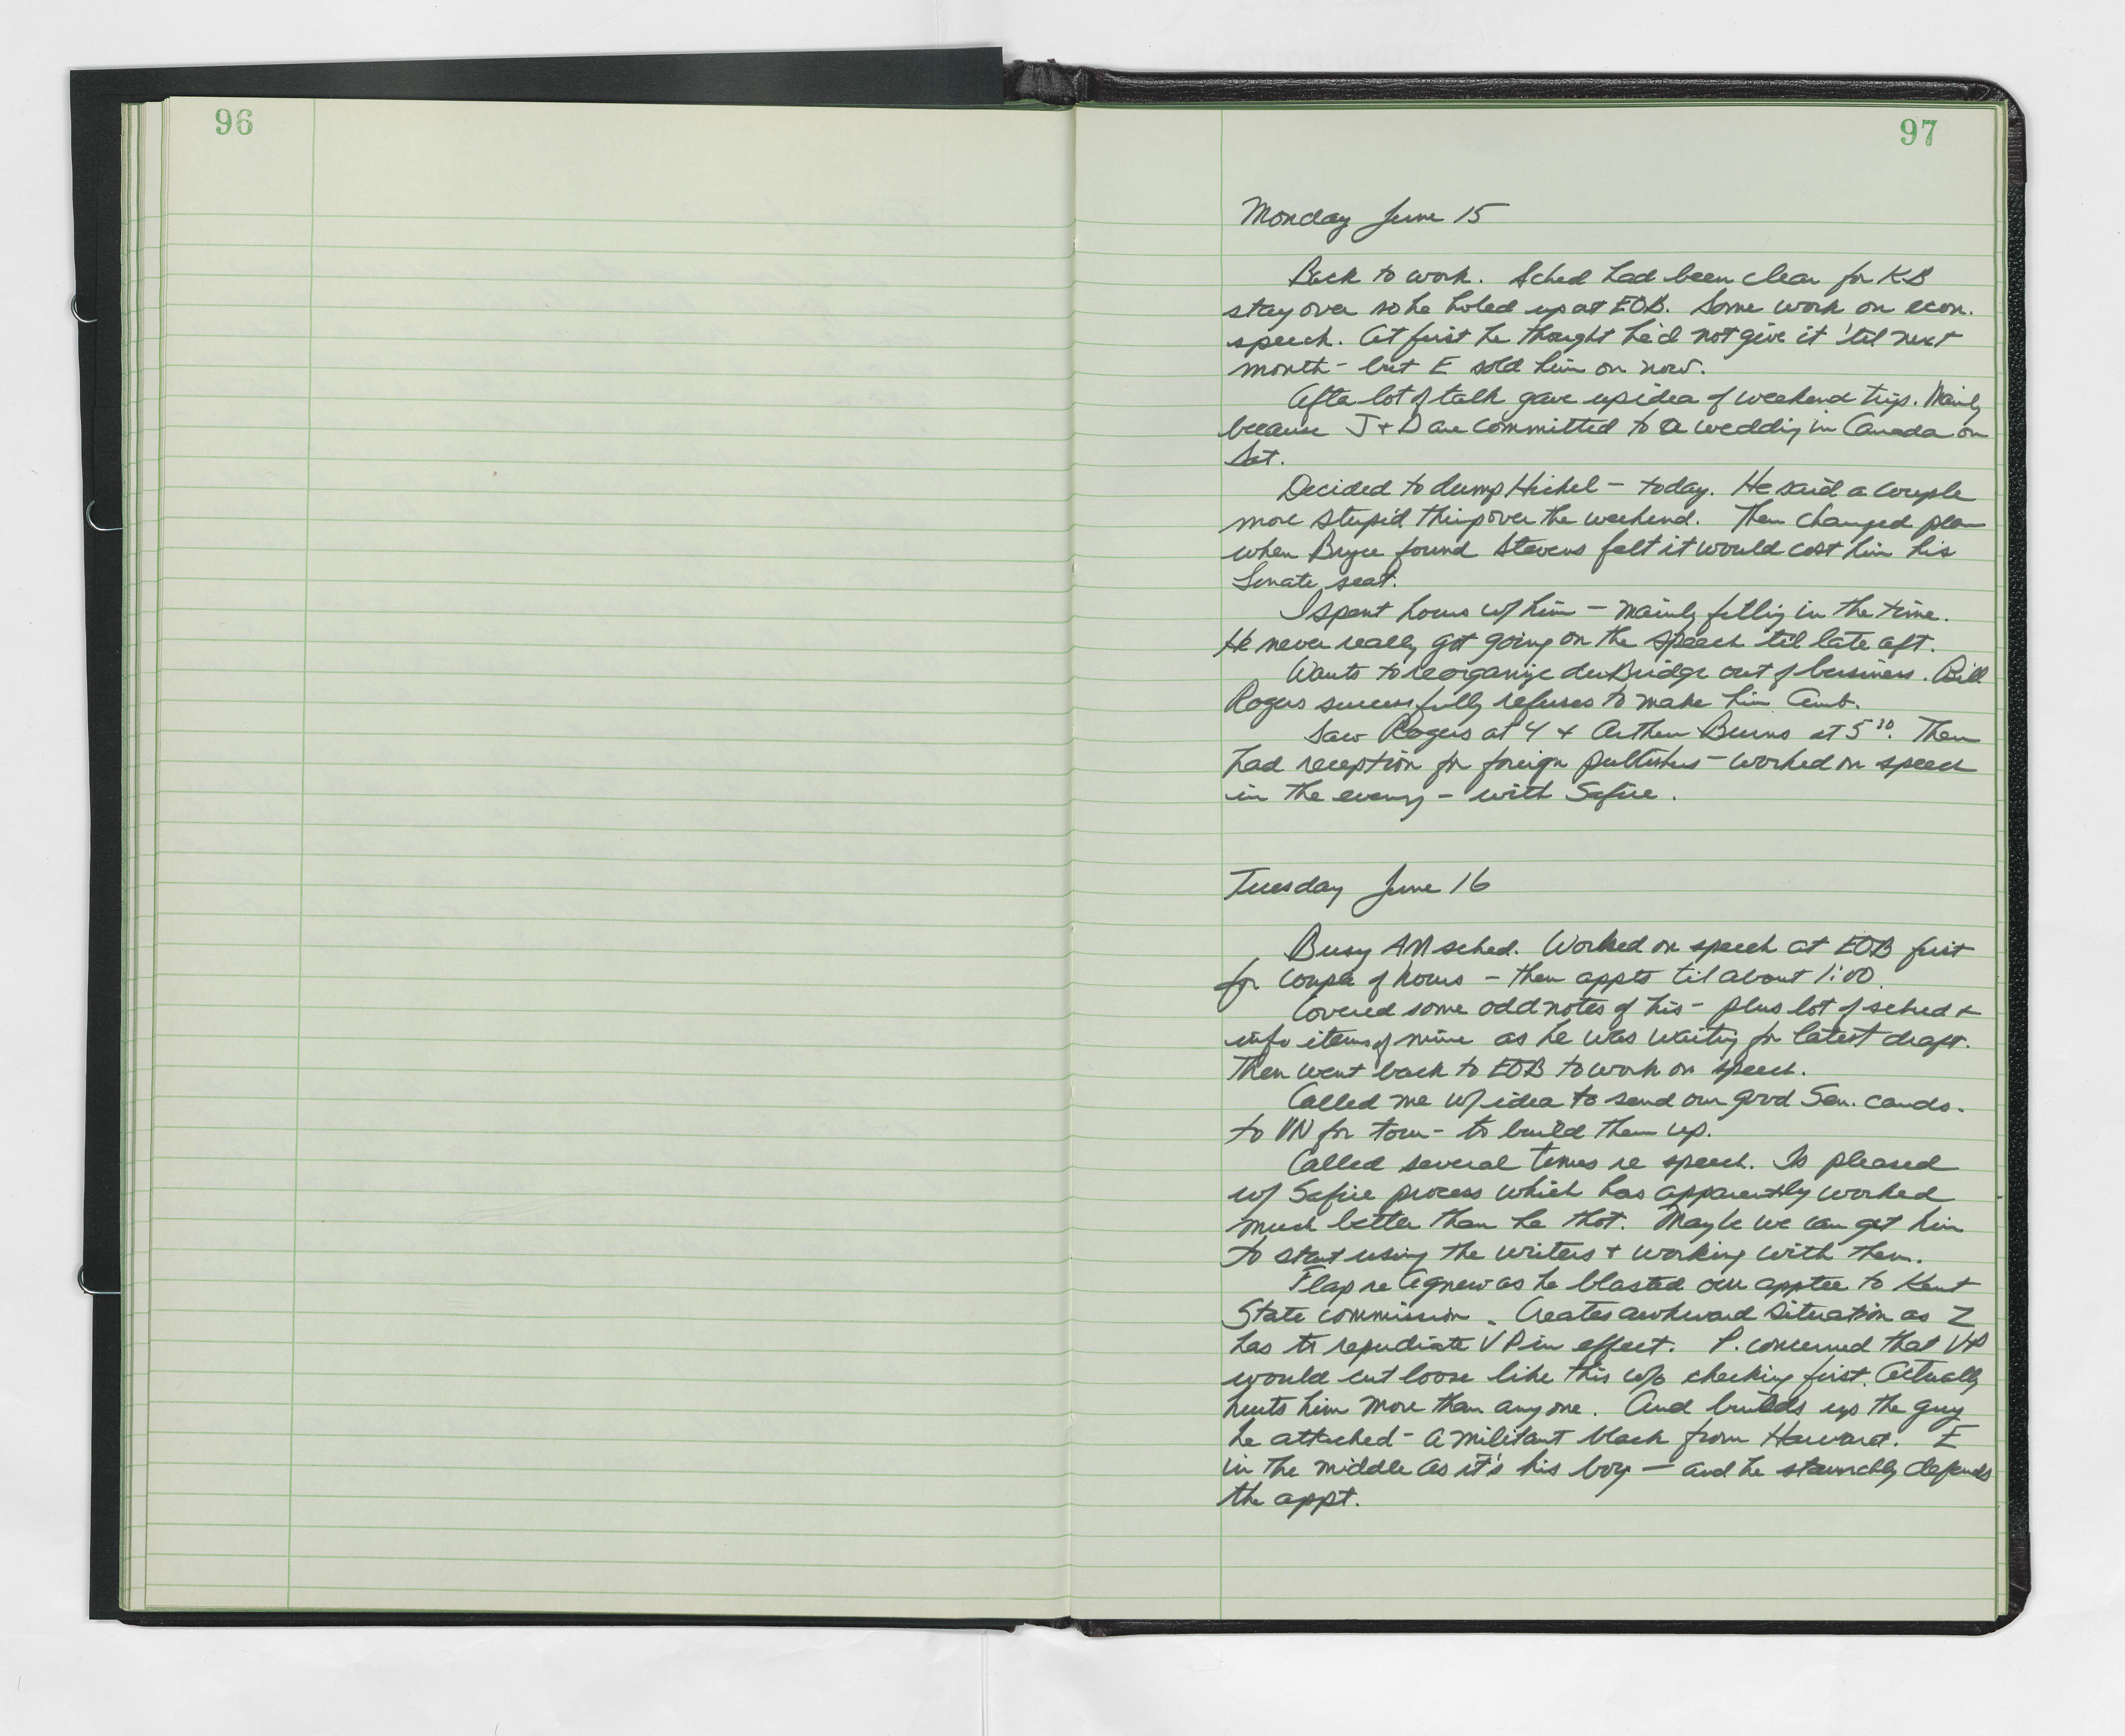 96
97
Monday June 15
Back to work. Sched had been clear for KB
stay over so he holed up at EOB. Some work on econ.
speech. At first he thought he'd not give it 'til next
month - but E sold him on now.
After lot of talk gave up idea of weekend trip. Mainly
because J + D are committed to a wedding in Canada on
Sat.
Decided to dump Hickel - today. He said a couple
more stupid things over the weekend. Then changed plan
when Bryce found Stevens felt it would cost him his
Senate seat.
I spent hours w/ him - mainly filling in the time.
He never really got going on the speech 'til late aft.
Wants to reorganize duBridge out of business. Bill
Rogers successfully refuses to make him Amb.
Saw Rogers at 4 + Arthur Burns at 5³⁰. Then
had reception for foreign publishers - worked on speech
in the evening - with Safire.
Tuesday June 16
Busy AM sched. Worked on speech at EOB first
for couple of hours - then appts til about 1:00.
Covered some odd notes of his - plus lot of sched +
info items of mine as he was waiting for latest draft.
Then went back to EOB to work on speech.
Called me w/ idea to send our good Sen. cands.
to VN for tour - to build them up.
Called several times re speech. Is pleased
w/ Safire process which has apparently worked
much better than he thot. Maybe we can get him
to start using the writers + working with them.
Flap re Agnew as he blasted our apptee to Kent
State commission. Creates awkward situation as Z
has to repudiate VP in effect. P. concerned that VP
would cut loose like this w/o checking first. Actually
hurts him more than anyone. And builds up the guy
he attacked - a militant black from Harvard. E
in the middle as it's his boy - and he staunchly defends
the appt.